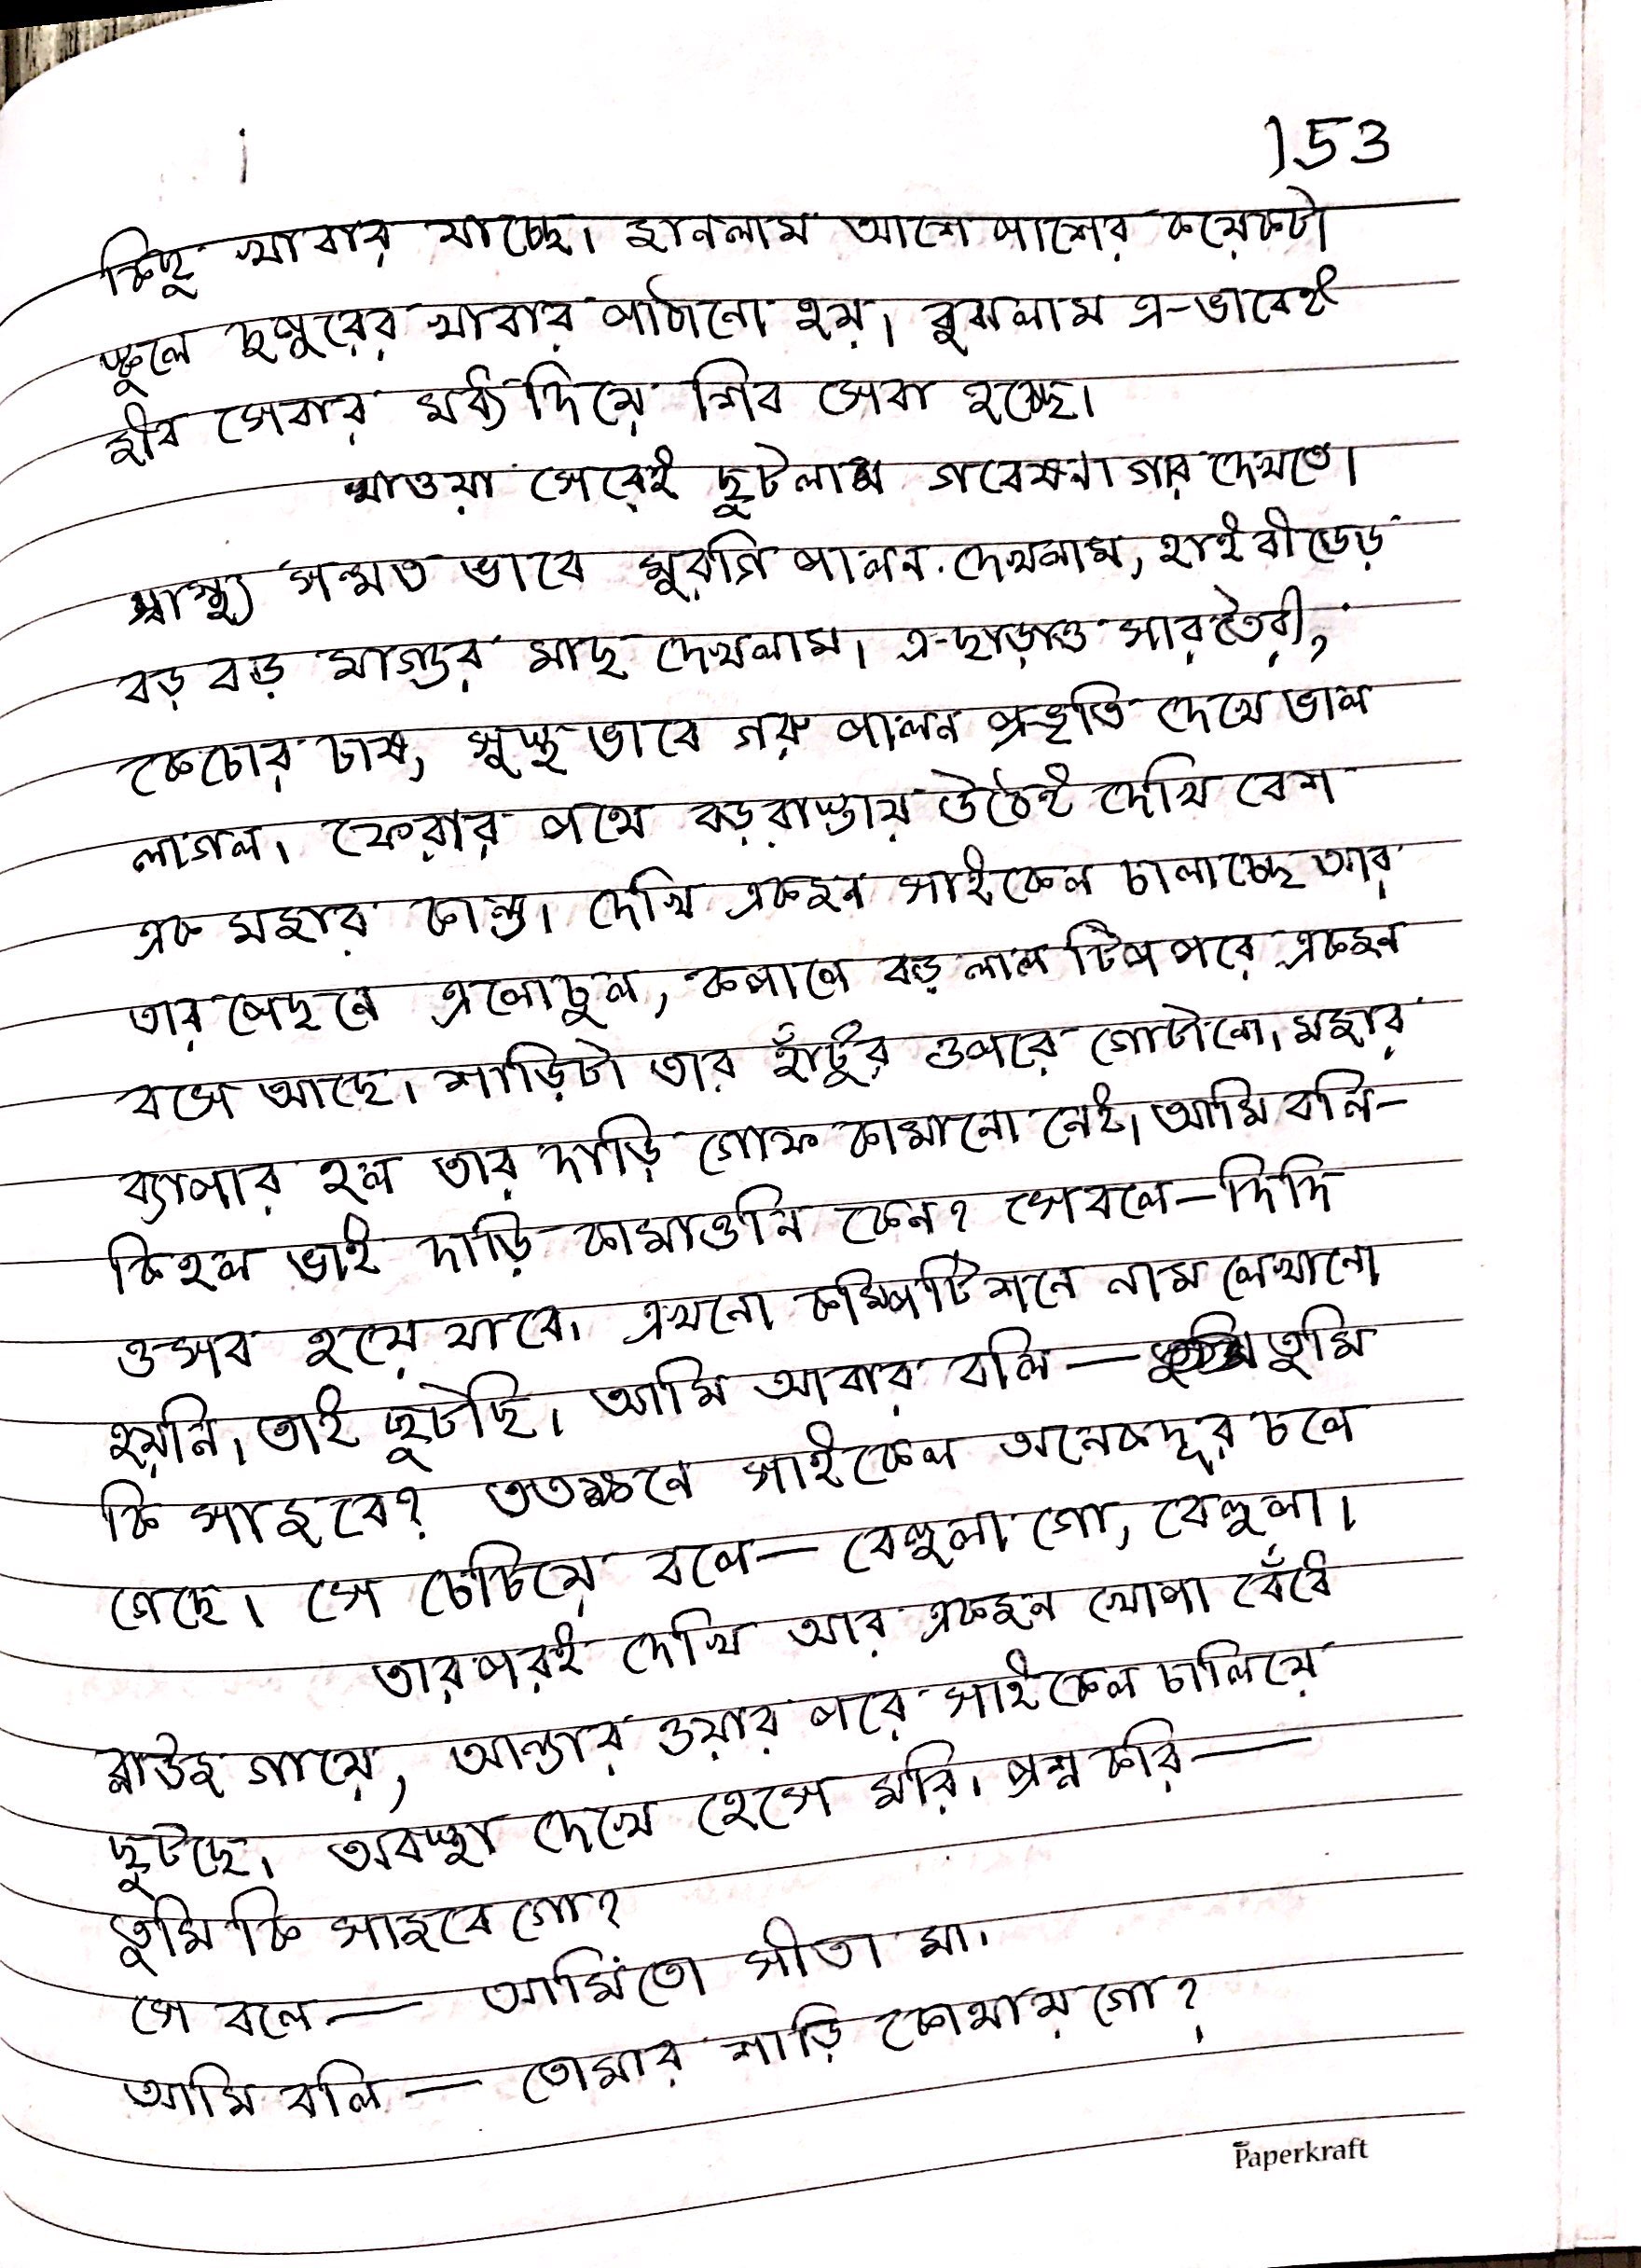 153
কিছু খাবার যাচ্ছে। জানলাম আশে পাশের কয়েকটা
স্কুলে দুপুরের খাবার পাঠানো হয়। বুঝলাম এ-ভাবেই
জীব সেবার মধ্যদিয়ে শিব সেবা হচ্ছে।
খাওয়া সেরেই ছুটলাম গবেষনাগার দেখতে।
স্বাস্থ্য সম্মত ভাবে মুরগি পালন দেখলাম, হাইব্রীডের
বড় বড় মাগুর মাছ দেখলাম। এ-ছাড়াও সার তৈরী,
কেচোর চাষ, সুস্থ ভাবে গরু পালন প্রভৃতি দেখে ভাল
লাগল। ফেরার পথে বড়রাস্তায় উঠেই দেখি বেশ
এক মজার কান্ড। দেখি একজন সাইকেল চালাচ্ছে আর
তার পেছনে এলোচুল, কপালে বড় লাল টিপ পরে একজন
বসে আছে। শাড়িটা তার হাঁটুর ওপরে গোটানো। মজার
ব্যাপার হল তার দাড়ি গোফ কামানো নেই। আমি বলি-
কি হল ভাই দাড়ি কামাওনি কেন? সে বলে - দিদি
ওসব হয়ে যাবে। এখনো কম্পিটিশনে নাম লেখানো
হয়নি। তাই ছুটেছি। আমি আবার বলি — তুমি
কি সাজবে? ততক্ষনে সাইকেল অনেকদূর চলে
গেছে। সে চেচিয়ে বলে — বেহুলা গো, বেহুলা।
তারপরই দেখি আর একজন খোপা বেঁধে
ব্লাউজ গায়ে, আন্ডার ওয়ার পরে সাইকেল চালিয়ে
ছুটছে। অবস্থা দেখে হেসে মরি। প্রশ্ন করি —
তুমি কি সাজবে গো?
সে বলে — আমিতো সীতা মা।
আমি বলি — তোমার শাড়ি কোথায় গো?
Paperkraft